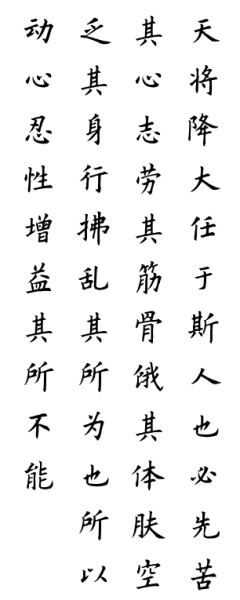 天将降大任于斯人也必先苦
其心志劳其筋骨饿其体肤空
乏其身行拂乱其所为也所以
动心忍性增益其所不能